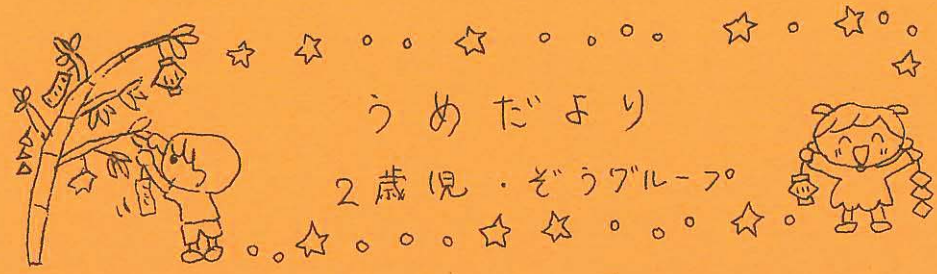 うめだより
2歳児・ぞうグループ